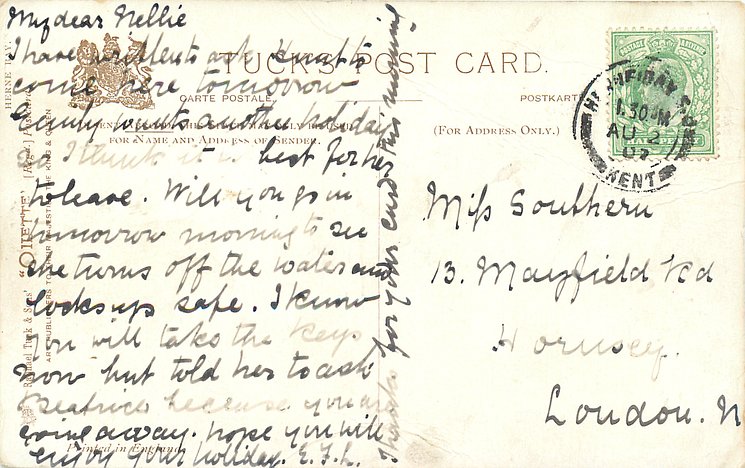 My dear Nellie
I have written to ask Aunt to
come here tomorrow
Emily wants another holiday
& I think it is best for her
to leave. Will you go in
tomorrow morning to see
she turns off the water and
locks up safe. I know
you will take the keys
now but told her to ask
Beatrice because you are
going away. hope you will
enjoy your holiday. E.F.L.
Thanks for your card this morning
TUCK'S POST CARD.
CARTE POSTALE
POSTKARTE
FOR NAME AND ADDRESS OF SENDER.
(FOR ADDRESS ONLY.)
HERNE BAY.
Raphael Tuck & Sons' "OILETTE" [Regd.]
ART PUBLISHERS TO THEIR MAJESTIES THE KING & QUEEN
Printed in England
POSTAGE
HALFPENNY
HERNE BAY S.O.
1.30 PM
AU 2
07
KENT
Miss Southern
13. Mayfield Rd
Hornsey.
London. N